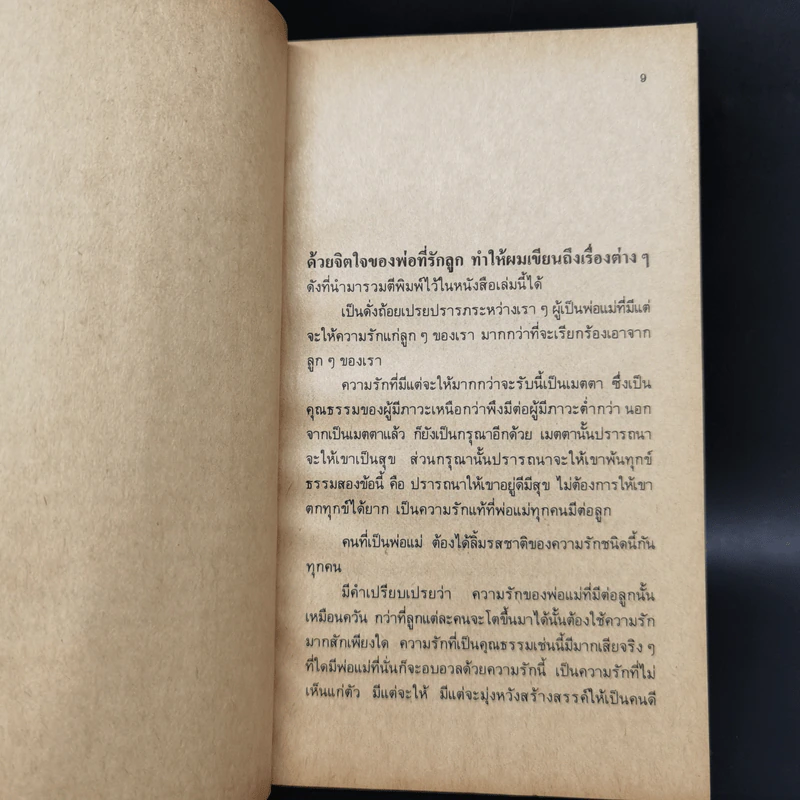 9
ด้วยจิตใจของพ่อที่รักลูก ทำให้ผมเขียนถึงเรื่องต่าง ๆ
ดังที่นำมารวมตีพิมพ์ไว้ในหนังสือเล่มนี้ได้
เป็นดั่งถ้อยเปรยปรารภระหว่างเรา ๆ ผู้เป็นพ่อแม่ที่มีแต่
จะให้ความรักแก่ลูก ๆ ของเรา มากกว่าที่จะเรียกร้องเอาจาก
ลูก ๆ ของเรา
ความรักที่มีแต่จะให้มากกว่าจะรับนี้เป็นเมตตา ซึ่งเป็น
คุณธรรมของผู้มีภาวะเหนือกว่าพึงมีต่อผู้มีภาวะต่ำกว่า นอก
จากเป็นเมตตาแล้ว ก็ยังเป็นกรุณาอีกด้วย เมตตานั้นปรารถนา
จะให้เขาเป็นสุข ส่วนกรุณานั้นปรารถนาจะให้เขาพ้นทุกข์
ธรรมสองข้อนี้ คือ ปรารถนาให้เขาอยู่ดีมีสุข ไม่ต้องการให้เขา
ตกทุกข์ได้ยาก เป็นความรักแท้ที่พ่อแม่ทุกคนมีต่อลูก
คนที่เป็นพ่อแม่ ต้องได้ลิ้มรสชาติของความรักชนิดนี้กัน
ทุกคน
มีคำเปรียบเปรยว่า ความรักของพ่อแม่ที่มีต่อลูกนั้น
เหมือนควัน กว่าที่ลูกแต่ละคนจะโตขึ้นมาได้นั้นต้องใช้ความรัก
มากสักเพียงใด ความรักที่เป็นคุณธรรมเช่นนี้มีมากเสียจริง ๆ
ที่ใดมีพ่อแม่ที่นั่นก็จะอบอวลด้วยความรักนี้ เป็นความรักที่ไม่
เห็นแก่ตัว มีแต่จะให้ มีแต่จะมุ่งหวังสร้างสรรค์ให้เป็นคนดี